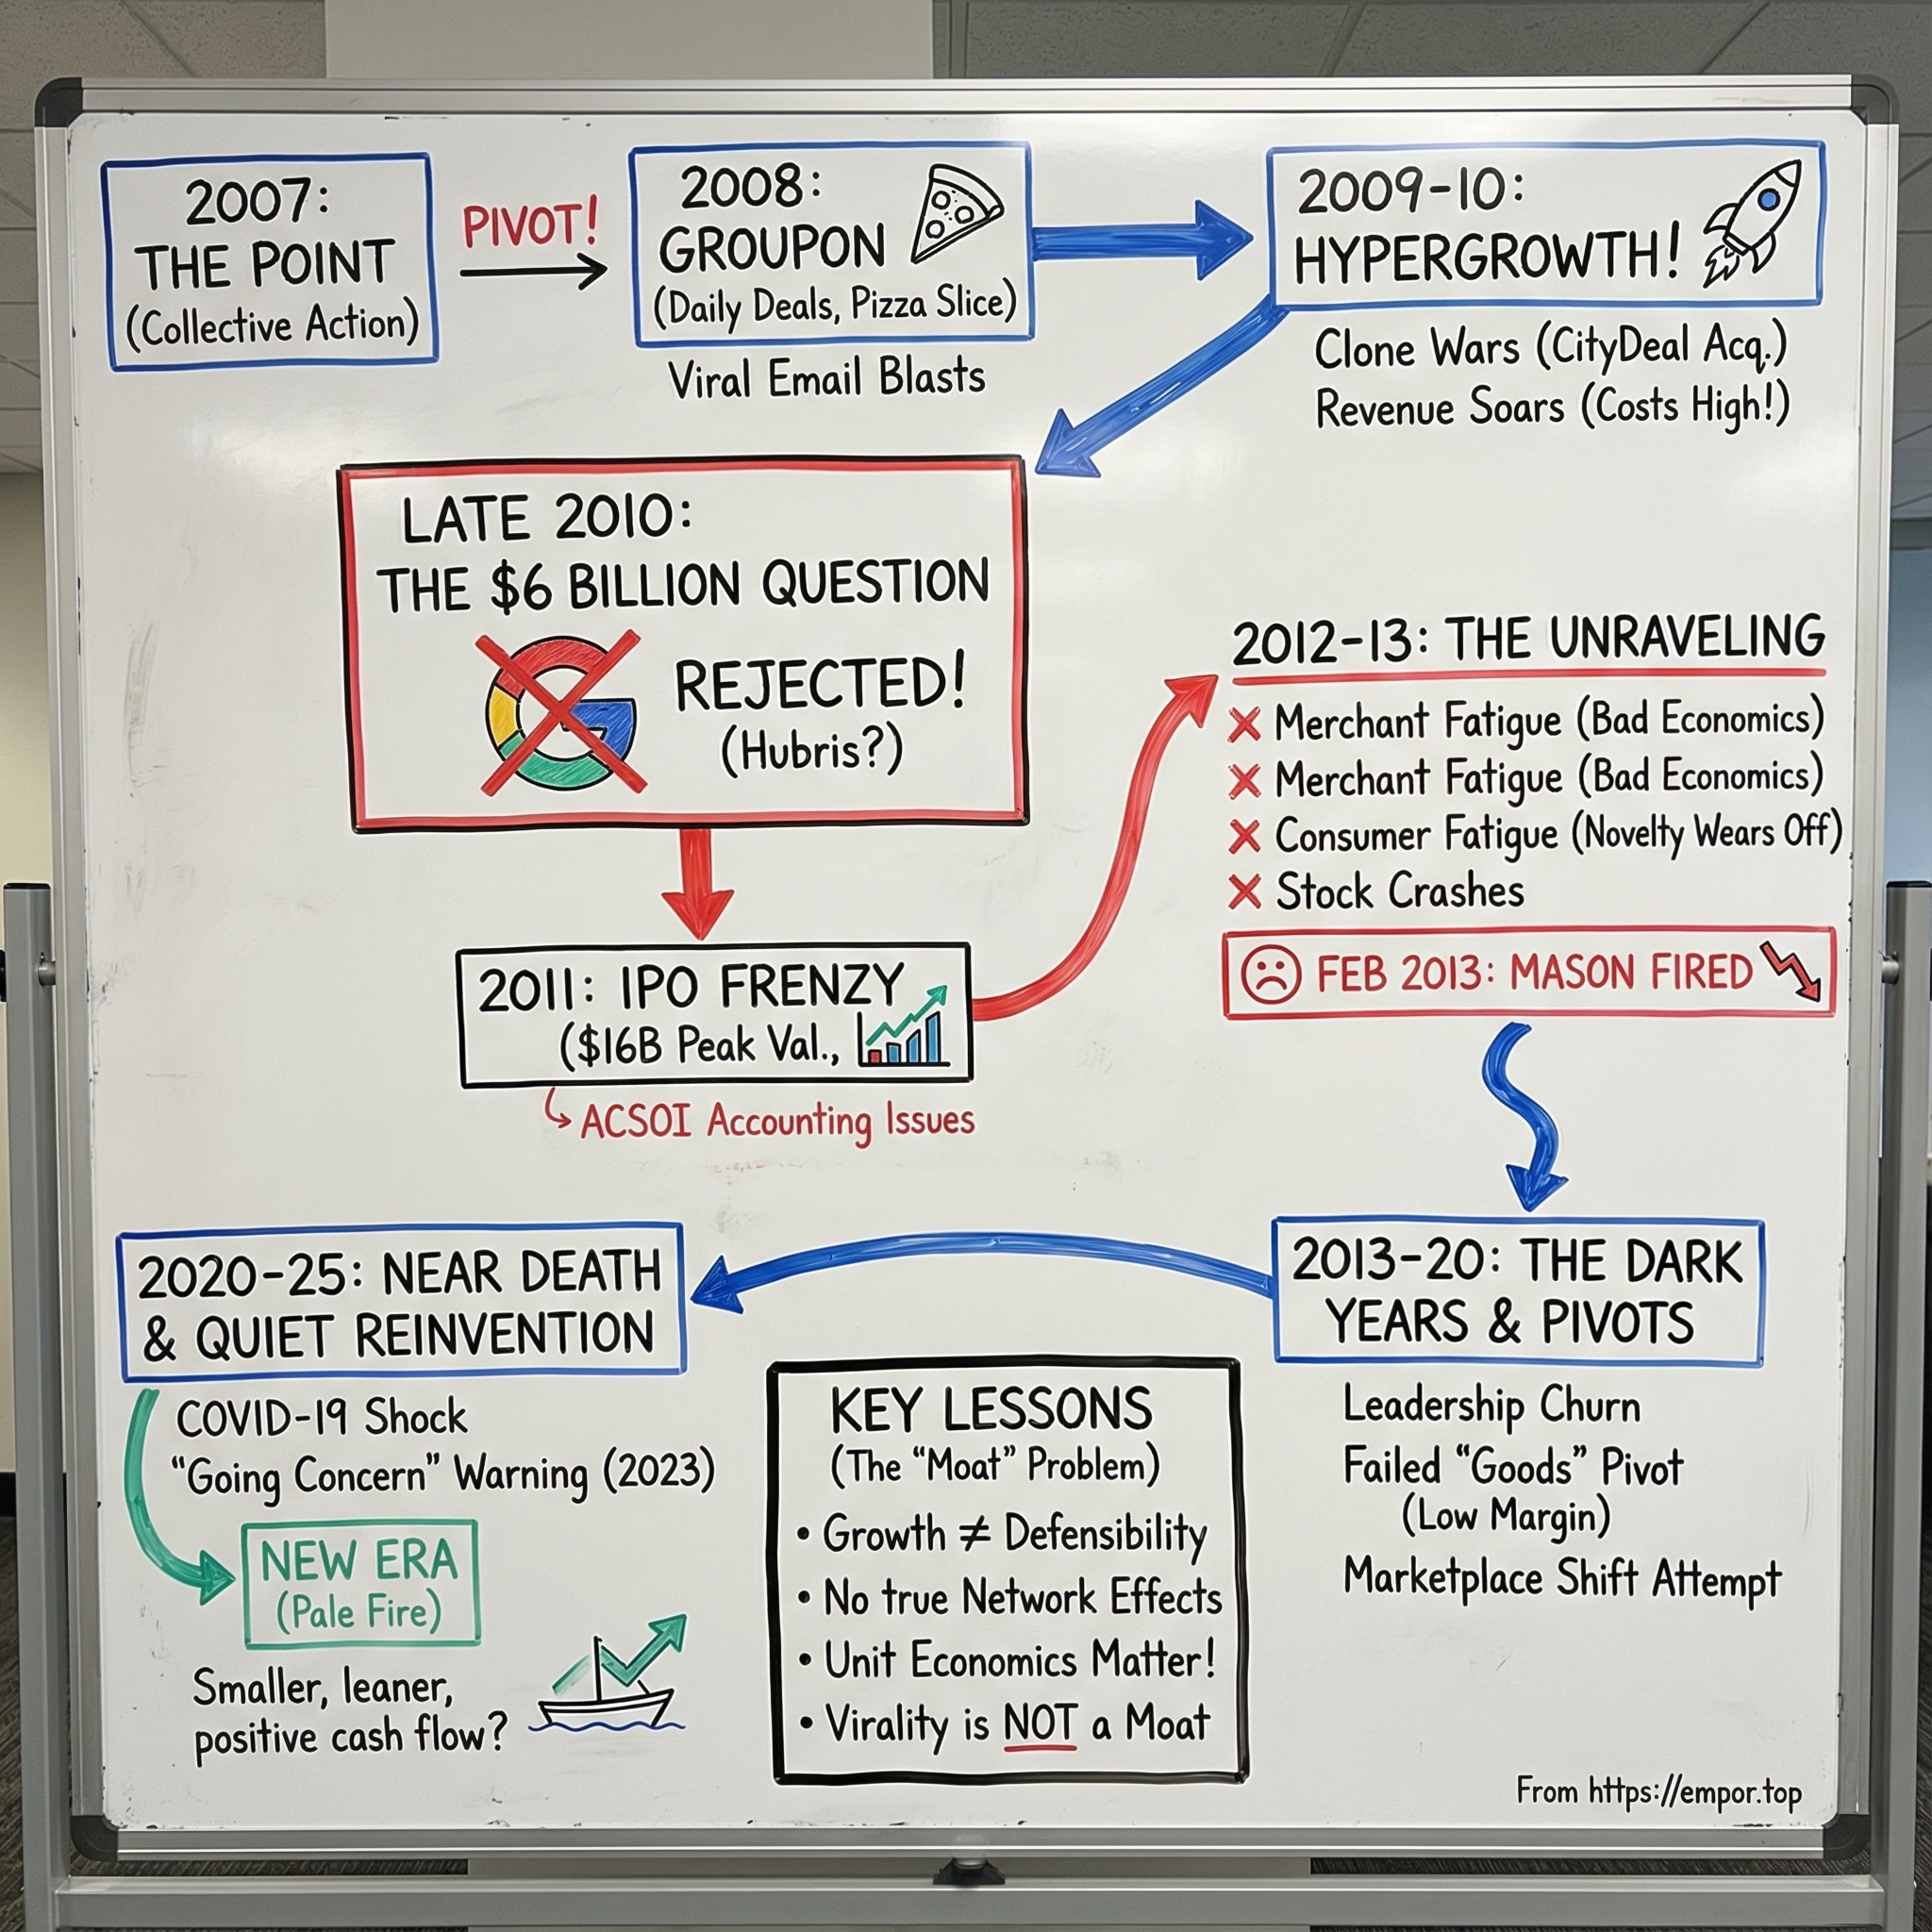 2007:
THE POINT
(Collective Action)
PIVOT!
2008:
GROUPON
(Daily Deals, Pizza Slice)
Viral Email Blasts
2009-10:
HYPERGROWTH!
Clone Wars (CityDeal Acq.)
Revenue Soars (Costs High!)
LATE 2010:
THE $6 BILLION QUESTION
REJECTED!
(Hubris?)
2011: IPO FRENZY
($16B Peak Val.,
ACSOI Accounting Issues
2012-13: THE UNRAVELING
X Merchant Fatigue (Bad Economics)
X Merchant Fatigue (Bad Economics)
X Consumer Fatigue (Novelty Wears Off)
X Stock Crashes
FEB 2013: MASON FIRED
2013-20: THE DARK
YEARS & PIVOTS
Leadership Churn
Failed "Goods" Pivot
(Low Margin)
Marketplace Shift Attempt
2020-25: NEAR DEATH
& QUIET REINVENTION
COVID-19 Shock
"Going Concern" Warning (2023)
NEW ERA
(Pale Fire)
Smaller, leaner,
positive cash flow?
KEY LESSONS
(The "Moat" Problem)
• Growth ≠ Defensibility
• No true Network Effects
• Unit Economics Matter!
• Virality is NOT a Moat
From https://empor.top